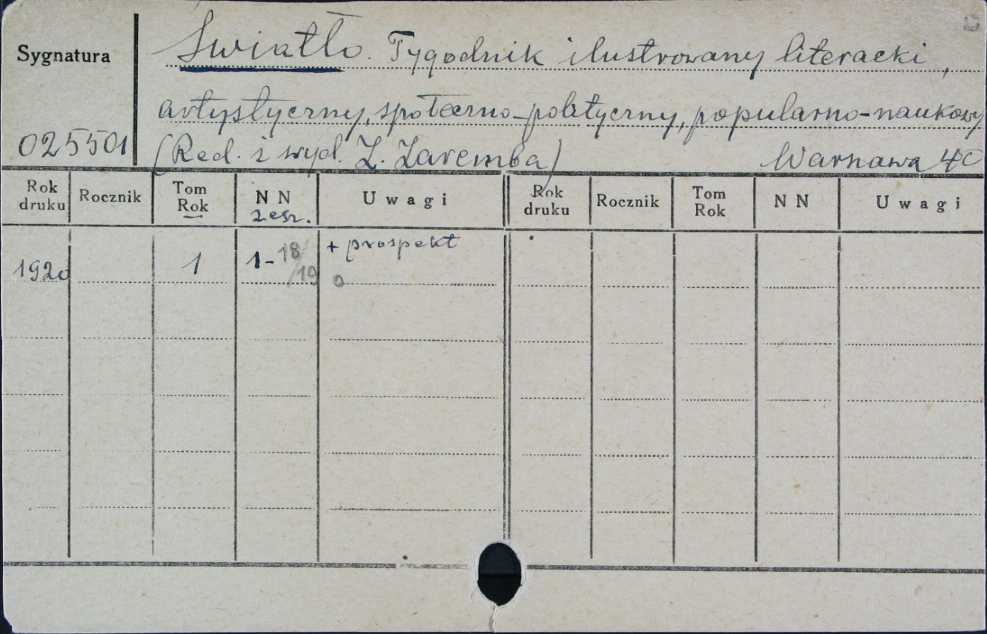 Sygnatura
Światło. Tygodnik ilustrowany literacki,
artystyczny, społeczno-polityczny, popularno-naukowy
025501 (Red. i wyd. Z. Zaremba) Warszawa 4º
Rok druku Rocznik Tom Rok NN zesz. Uwagi Rok druku Rocznik Tom Rok NN Uwagi
1920 1 1-18/19 + prospekt